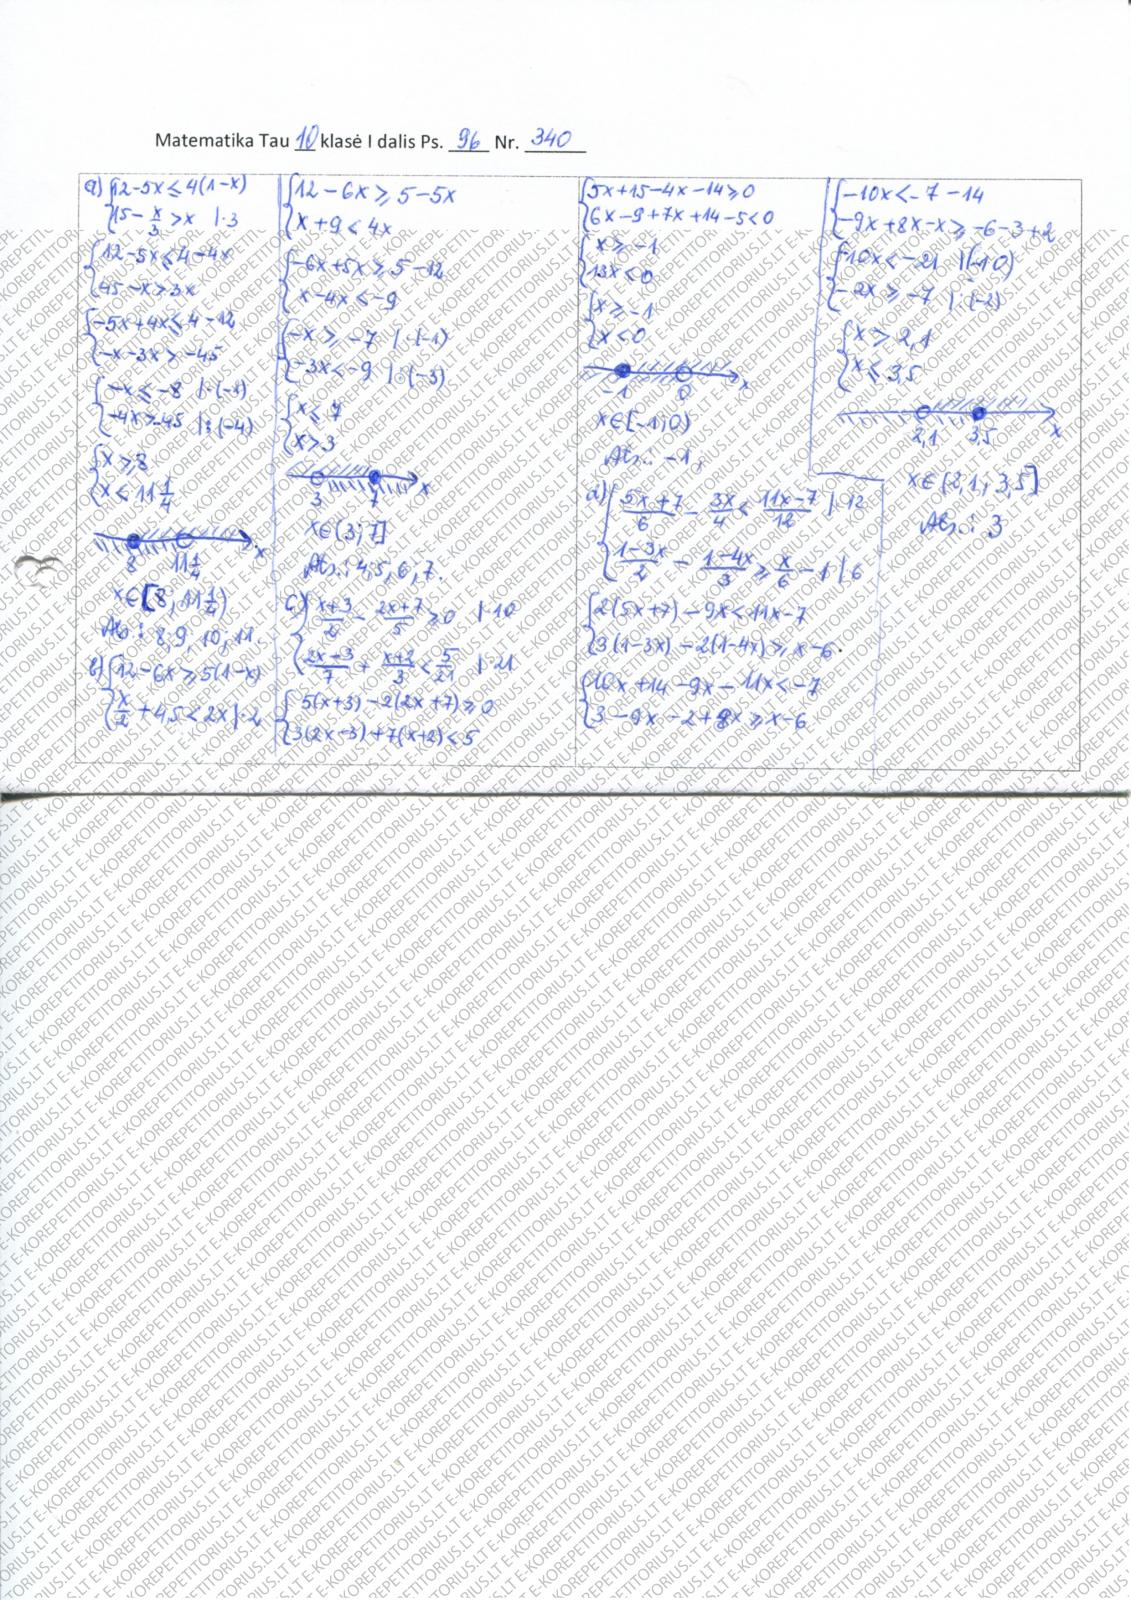 Matematika Tau 10 klasė I dalis Ps. 96 Nr. 340
a) {12-5x ≤ 4(1-x)
{15 - x/3 > x |·3
{12-5x ≤ 4-4x
{45-x > 3x
{-5x+4x ≤ 4-12
{-x-3x > -45
{-x ≤ -8 |:(-1)
{-4x > -45 |:(-4)
{x ≥ 8
{x < 11 1/4
8 11 1/4 x
x∈[8; 11 1/4)
Ats.: 8; 9; 10; 11.
b) {12-6x ≥ 5(1-x)
{x/2 + 4,5 < 2x |·2
{12-6x ≥ 5-5x
{x+9 < 4x
{-6x+5x ≥ 5-12
{x-4x < -9
{-x ≥ -7 |:(-1)
{-3x < -9 |:(-3)
{x ≤ 7
{x > 3
3 7 x
x∈(3; 7]
Ats.: 4; 5; 6; 7.
c) {x+3/2 - 2x+7/5 ≥ 0 |·10
{2x-3/7 + x+2/3 < 5/21 |·21
{5(x+3)-2(2x+7) ≥ 0
{3(2x-3)+7(x+2) < 5
{5x+15-4x-14 ≥ 0
{6x-9+7x+14-5 < 0
{x ≥ -1
{13x < 0
{x ≥ -1
{x < 0
-1 0 x
x∈[-1; 0)
Ats.: -1;
d) {5x+7/6 - 3x/4 < 11x-7/12 |·12
{1-3x/2 - 1-4x/3 ≥ x/6 - 1 |·6
{2(5x+7)-9x < 11x-7
{3(1-3x)-2(1-4x) ≥ x-6.
{10x+14-9x-11x < -7
{3-9x-2+8x ≥ x-6
{-10x < -7-14
{-9x+8x-x ≥ -6-3+2
{-10x < -21 |:(-10)
{-2x ≥ -7 |:(-2)
{x > 2,1
{x ≤ 3,5
2,1 3,5 x
x∈(2,1; 3,5]
Ats.: 3
E-KOREPETITORIUS.LT